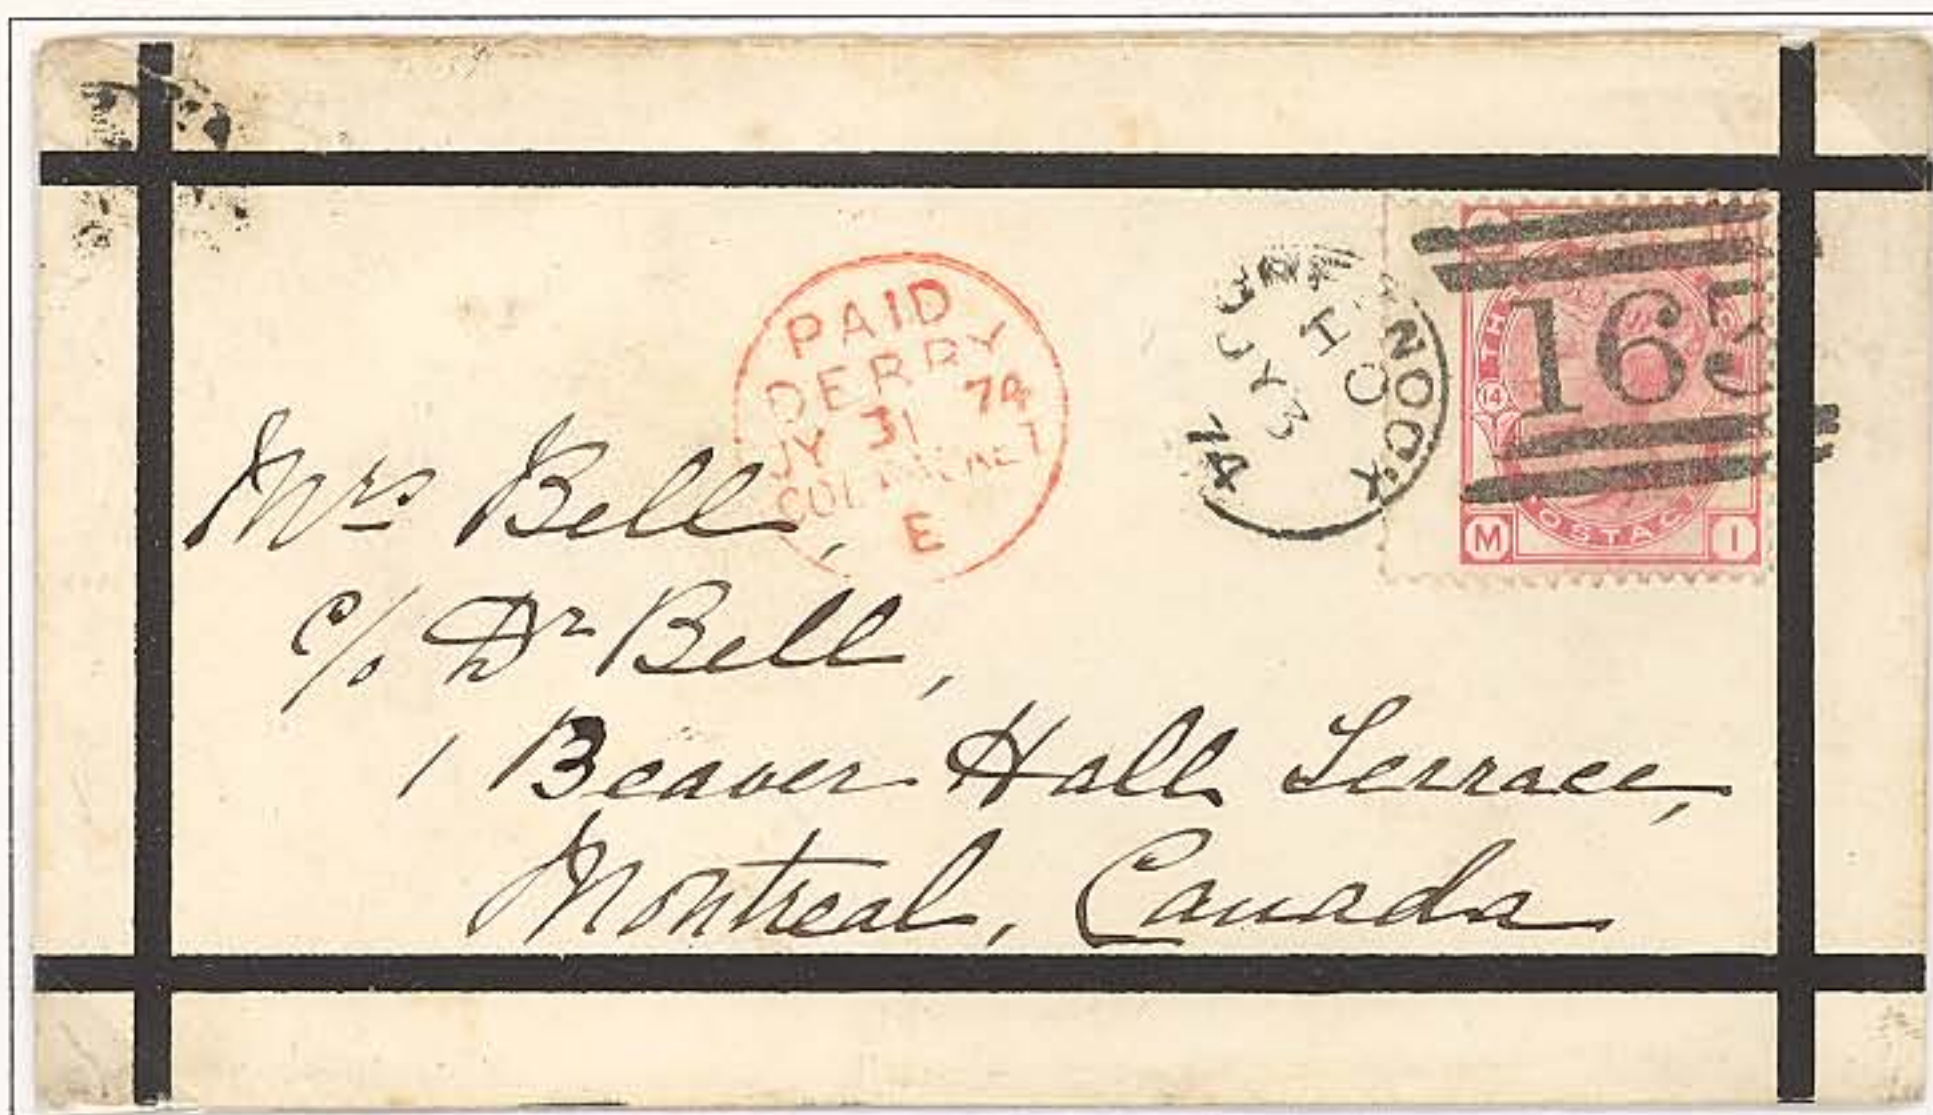 PAID
DERRY
JY 31 74
COL PACKET
E
74 JY 3 H 0
165
14
M I
Mrs Bell,
c/o Dr Bell,
1 Beaver Hall Terrace,
Montreal, Canada